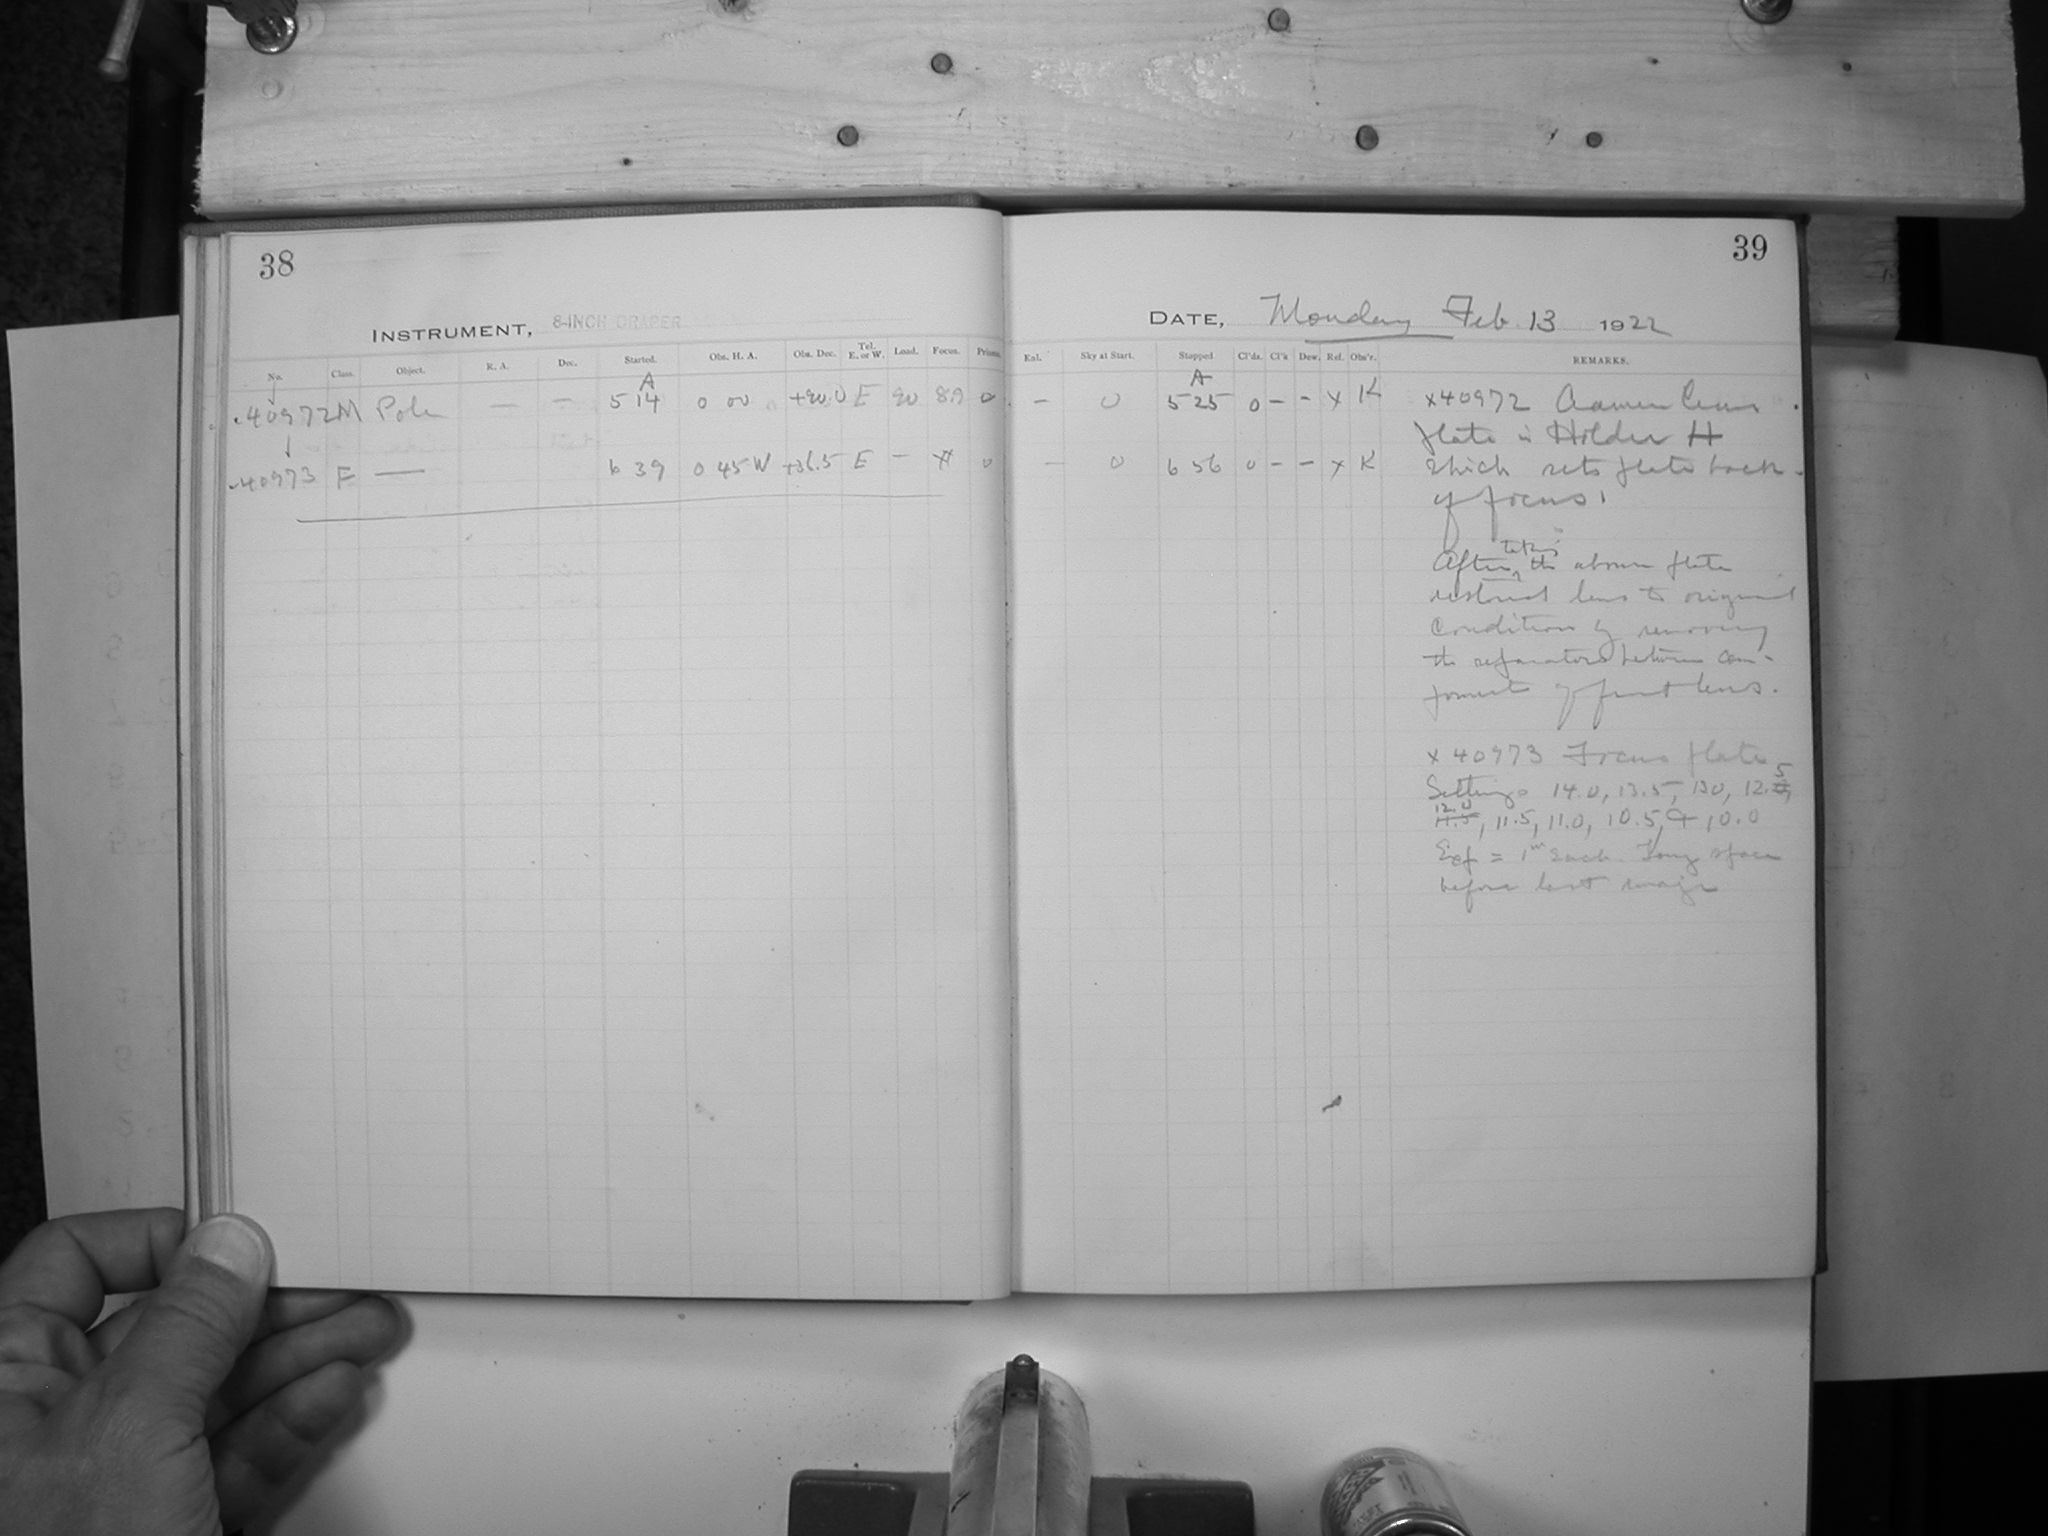 38
INSTRUMENT, 8-INCH DRAPER
No. Class. Object. R. A. Dec. Started. Obs. H. A. Obs. Dec. Tel. E. or W. Load. Focus. Prisms
A
40972 M Pole — — 5 14 0 00 +90.0 E 90 8.9 0
↓
40973 F — 6 39 0 45 W +36.5 E — x 0
39
DATE, Monday Feb. 13 1922
Eal. Sky at Start. Stopped Cl'ds. Cl'k Dew. Ref. Obs'r. REMARKS.
A
— 0 5 25 0 – – x K
— 0 6 56 0 – – x K
x40972 lens
plate in Holder H
which sets plate back
of focus.
After taking the above plate
restored lens to original
condition by removing
the separators between com-
ponents of front lens.
x 40973 Focus plate
Settings 14.0, 13.5, 13.0, 12.5,
12.0, 11.5, 11.0, 10.5, & 10.0
Exp = 1m each. Long space
before last image